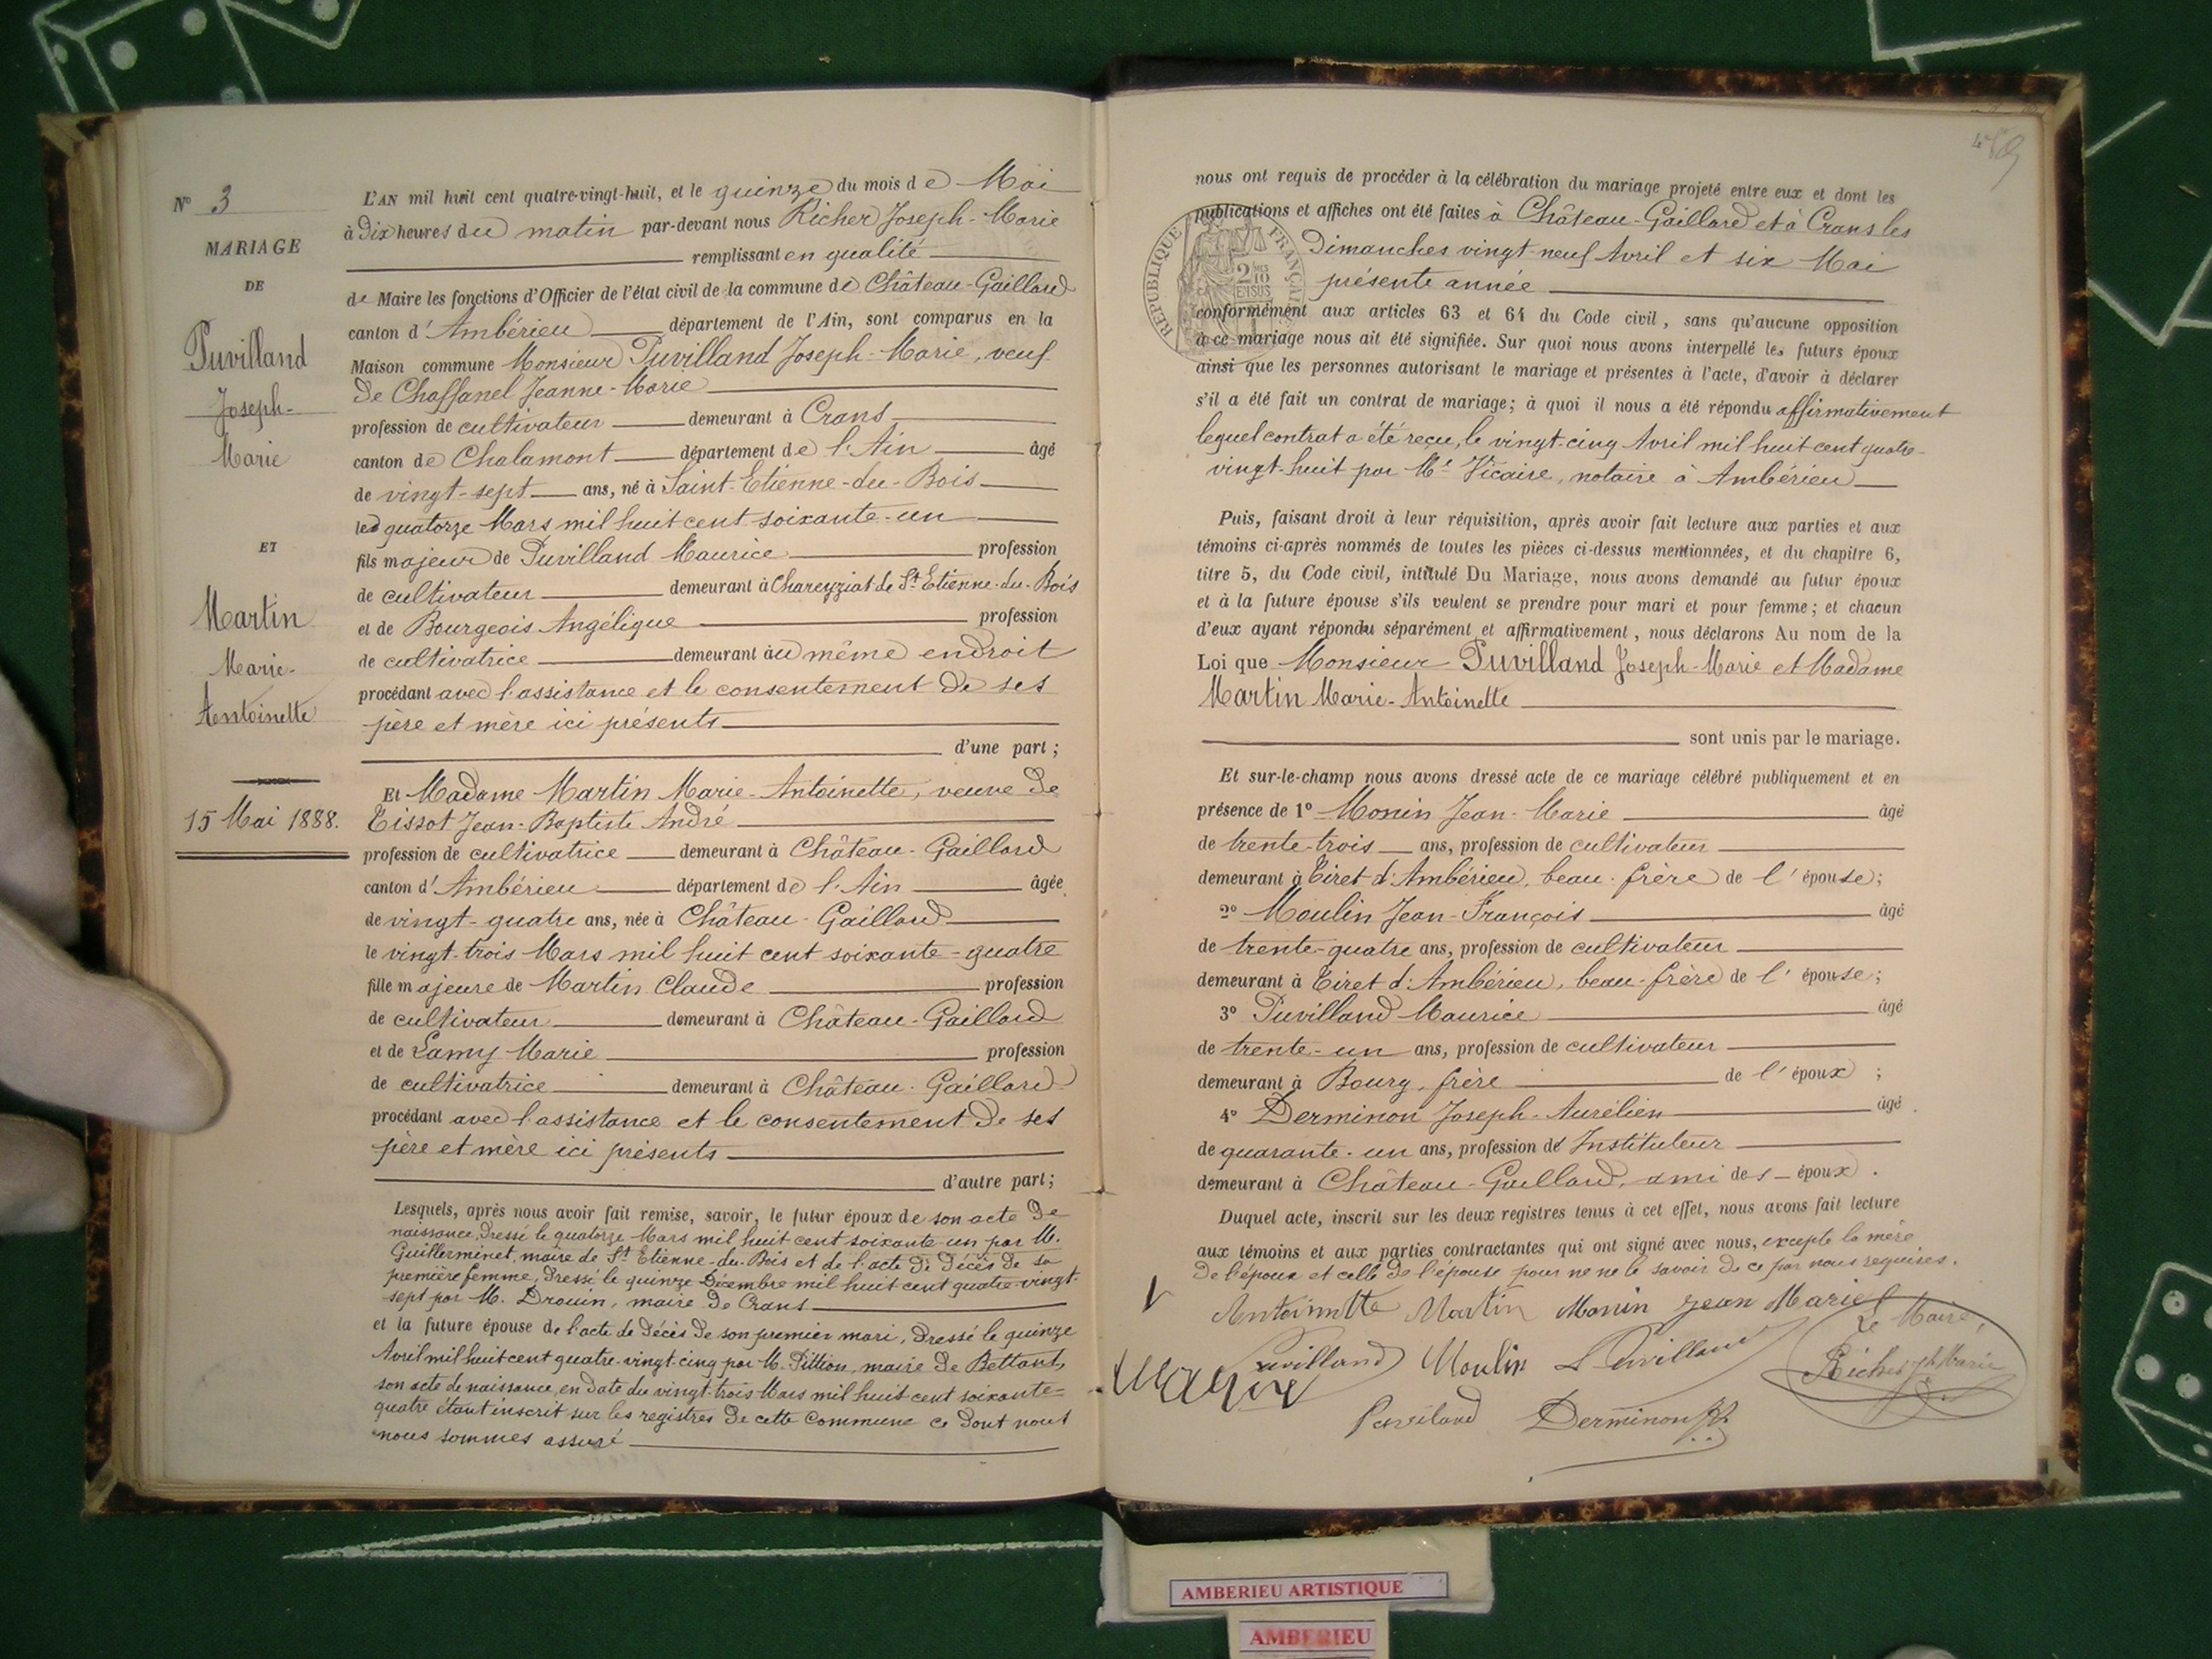 N° 3
MARIAGE
DE
Puvilland
Joseph-
Marie
ET
Martin
Marie-
Antoinette
15 Mai 1888.
L'AN mil huit cent quatre-vingt-huit, et le quinze du mois de Mai
à dix heures du matin par-devant nous Richer Joseph-Marie
remplissant en qualité
de Maire les fonctions d'Officier de l'état civil de la commune de Château-Gaillard
canton d'Ambérieu département de l'Ain, sont comparus en la
Maison commune Monsieur Puvilland Joseph-Marie, veuf
de Chaffanel Jeanne-Marie
profession de cultivateur demeurant à Crans
canton de Chalamont département de l'Ain âgé
de vingt-sept ans, né à Saint-Etienne-du-Bois
le quatorze Mars mil huit cent soixante-un
fils majeur de Puvilland Maurice profession
de cultivateur demeurant à Chareyziat de St Etienne-du-Bois
et de Bourgeois Angélique profession
de cultivatrice demeurant au même endroit
procédant avec l'assistance et le consentement de ses
père et mère ici présents
d'une part ;
Et Madame Martin Marie-Antoinette, veuve de
Tissot Jean-Baptiste André
profession de cultivatrice demeurant à Château-Gaillard
canton d'Ambérieu département de l'Ain âgée
de vingt-quatre ans, née à Château-Gaillard
le vingt-trois Mars mil huit cent soixante-quatre
fille majeure de Martin Claude profession
de cultivateur demeurant à Château-Gaillard
et de Lamy Marie profession
de cultivatrice demeurant à Château-Gaillard
procédant avec l'assistance et le consentement de ses
père et mère ici présents
d'autre part ;
Lesquels, après nous avoir fait remise, savoir, le futur époux de son acte de
naissance, dressé le quatorze Mars mil huit cent soixante-un par M.
Guillerminet, maire de St Etienne-du-Bois et de l'acte de décès de sa
première femme, dressé le quinze Décembre mil huit cent quatre-vingt-
sept par M. Drouin, maire de Crans
et la future épouse de l'acte de décès de son premier mari, dressé le quinze
Avril mil huit cent quatre-vingt-cinq par M. Pittion, maire de Bettant,
son acte de naissance, en date du vingt-trois Mars mil huit cent soixante=
quatre étant inscrit sur les registres de cette commune ce dont nous
nous sommes assuré
nous ont requis de procéder à la célébration du mariage projeté entre eux et dont les
publications et affiches ont été faites à Château-Gaillard et à Crans les
Dimanches vingt-neuf Avril et six Mai
présente année
RÉPUBLIQUE FRANÇAISE
2 10
EN SUS
conformément aux articles 63 et 64 du Code civil, sans qu'aucune opposition
à ce mariage nous ait été signifiée. Sur quoi nous avons interpellé les futurs époux
ainsi que les personnes autorisant le mariage et présentes à l'acte, d'avoir à déclarer
s'il a été fait un contrat de mariage ; à quoi il nous a été répondu affirmativement
lequel contrat a été reçu, le vingt-cinq Avril mil huit cent quatre-
vingt-huit par Me Vicaire, notaire à Ambérieu
Puis, faisant droit à leur réquisition, après avoir fait lecture aux parties et aux
témoins ci-après nommés de toutes les pièces ci-dessus mentionnées, et du chapitre 6,
titre 5, du Code civil, intitulé Du Mariage, nous avons demandé au futur époux
et à la future épouse s'ils veulent se prendre pour mari et pour femme ; et chacun
d'eux ayant répondu séparément et affirmativement, nous déclarons Au nom de la
Loi que Monsieur Puvilland Joseph-Marie et Madame
Martin Marie-Antoinette
sont unis par le mariage.
Et sur-le-champ nous avons dressé acte de ce mariage célébré publiquement et en
présence de 1° Monin Jean-Marie âgé
de trente-trois ans, profession de cultivateur
demeurant à Tiret d'Ambérieu, beau-frère de l'épouse ;
2° Moulin Jean-François âgé
de trente-quatre ans, profession de cultivateur
demeurant à Tiret d'Ambérieu, beau-frère de l'épouse ;
3° Puvilland Maurice âgé
de trente-un ans, profession de cultivateur
demeurant à Bourg, frère de l'époux ;
4° Derminon Joseph-Aurélien âgé
de quarante-un ans, profession d'Instituteur
demeurant à Château-Gaillard, ami des époux.
Duquel acte, inscrit sur les deux registres tenus à cet effet, nous avons fait lecture
aux témoins et aux parties contractantes qui ont signé avec nous, excepté la mère
de l'époux et celle de l'épouse pour ne ne le savoir de ce par nous requises.
Antoinette Martin Monin Jean Marie
Le Maire,
Puvilland Moulin Puvilland
Richer Jh Marie
Puvilland Derminon
AMBERIEU ARTISTIQUE
AMBERIEU